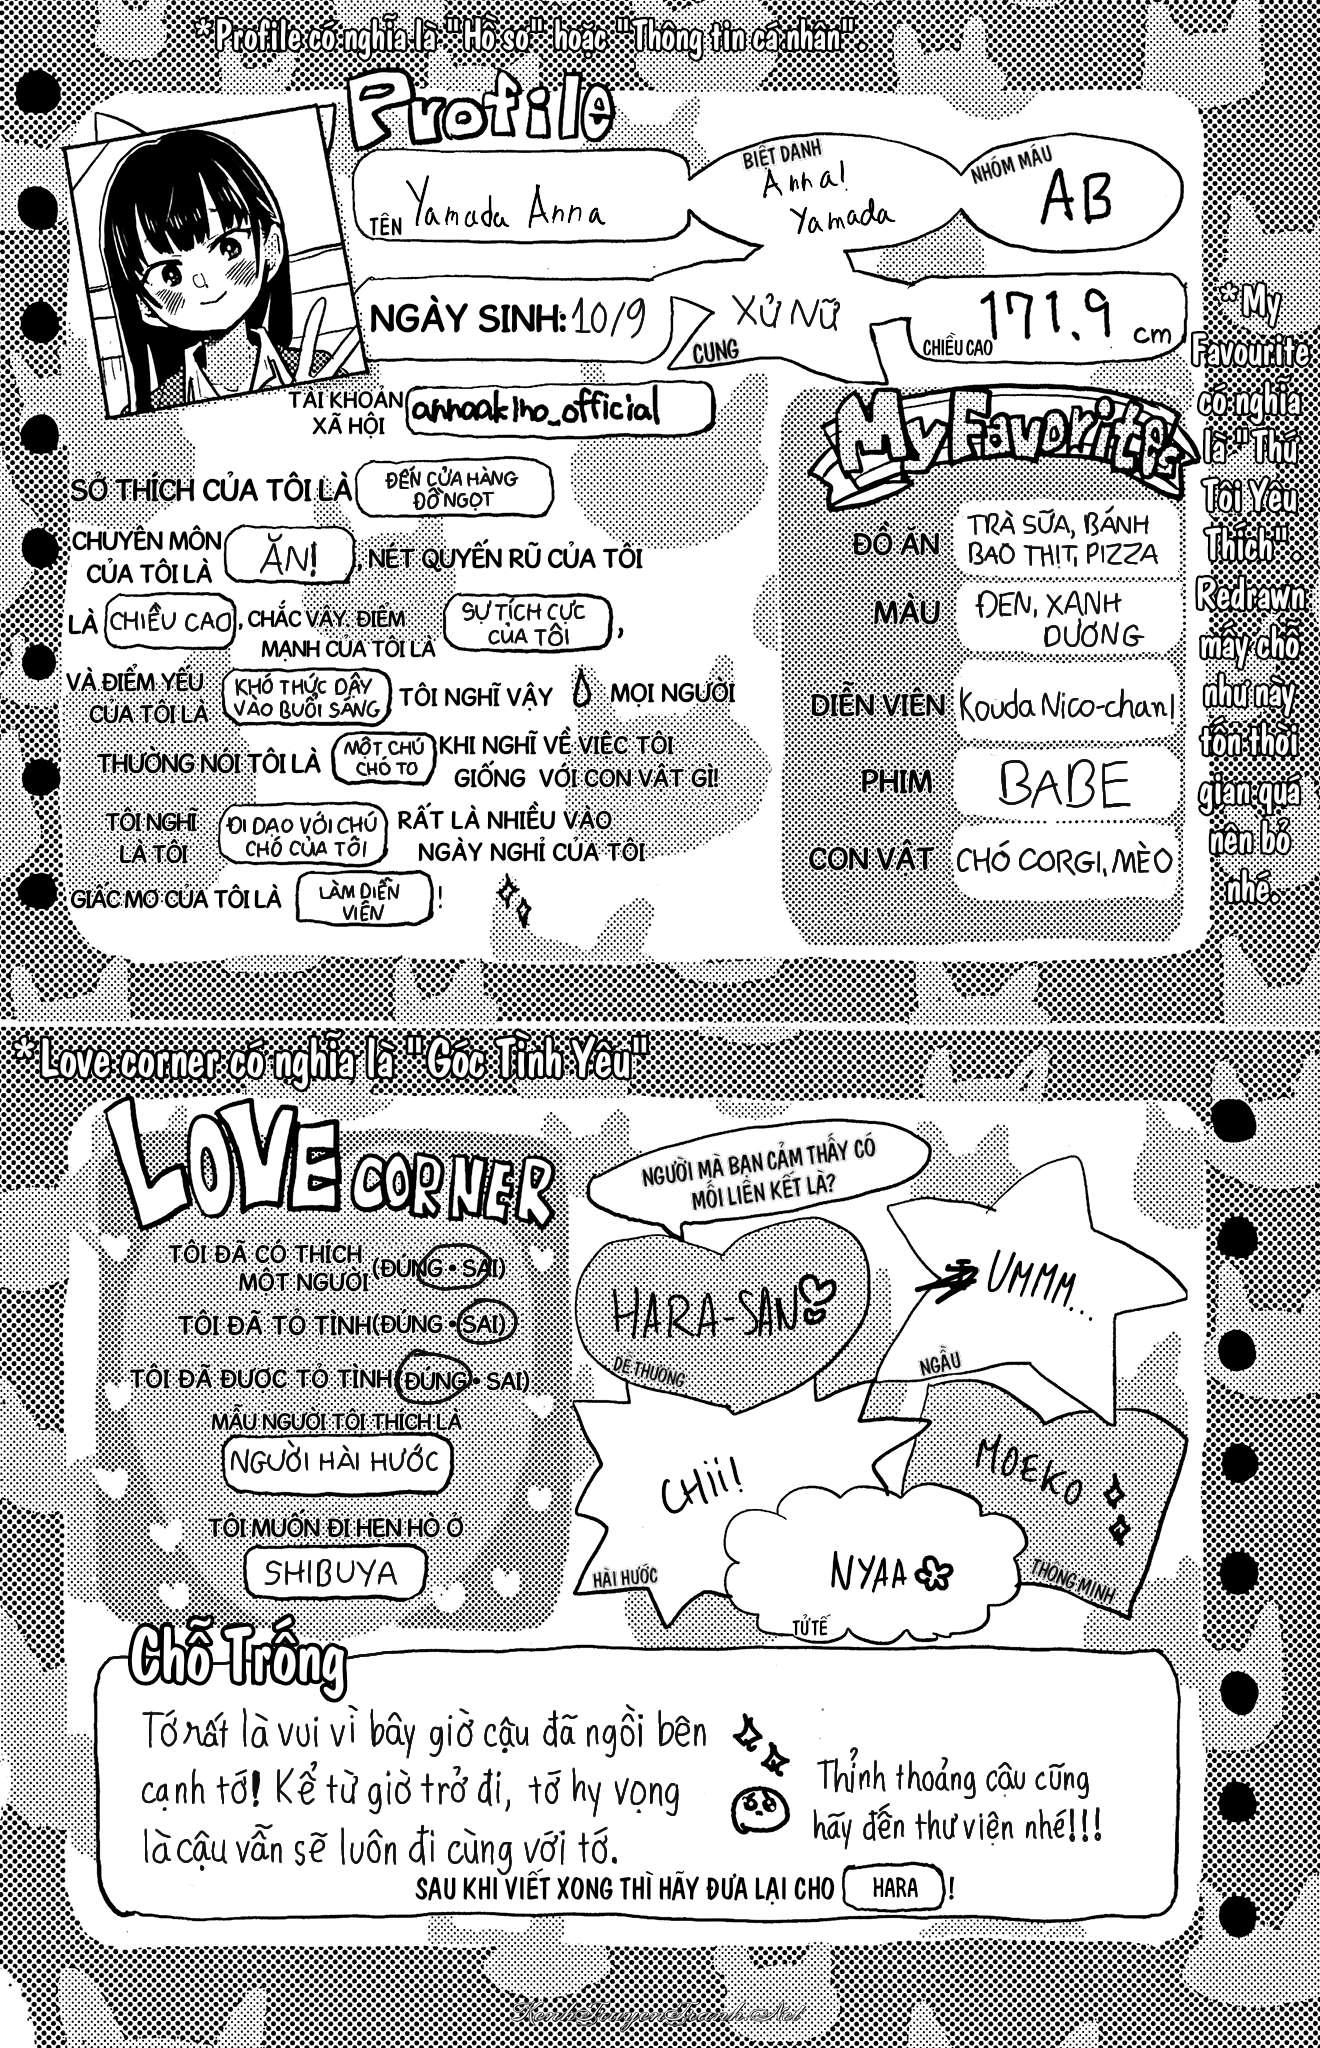 *Profile có nghĩa là "Hồ sơ" hoặc "Thông tin cá nhân".
Profile
TÊN Yamada Anna
BIỆT DANH
Anna!
Yamada
NHÓM MÁU
AB
NGÀY SINH: 10/9
XỬ NỮ
CUNG
171.9 cm
CHIỀU CAO
TÀI KHOẢN
XÃ HỘI
annaakino_official
SỞ THÍCH CỦA TÔI LÀ
ĐẾN CỬA HÀNG
ĐỒ NGỌT
CHUYÊN MÔN
CỦA TÔI LÀ
ĂN!
, NÉT QUYẾN RŨ CỦA TÔI
LÀ
CHIỀU CAO
, CHẮC VẬY. ĐIỂM
MẠNH CỦA TÔI LÀ
SỰ TÍCH CỰC
CỦA TÔI
,
VÀ ĐIỂM YẾU
CỦA TÔI LÀ
KHÓ THỨC DẬY
VÀO BUỔI SÁNG
TÔI NGHĨ VẬY
MỌI NGƯỜI
THƯỜNG NÓI TÔI LÀ
MỘT CHÚ
CHÓ TO
KHI NGHĨ VỀ VIỆC TÔI
GIỐNG VỚI CON VẬT GÌ!
TÔI NGHĨ
LÀ TÔI
ĐI DẠO VỚI CHÚ
CHÓ CỦA TÔI
RẤT LÀ NHIỀU VÀO
NGÀY NGHỈ CỦA TÔI
GIẤC MƠ CỦA TÔI LÀ
LÀM DIỄN
VIÊN
!
My Favorites
ĐỒ ĂN
TRÀ SỮA, BÁNH
BAO THỊT, PIZZA
MÀU
ĐEN, XANH
DƯƠNG
DIỄN VIÊN
Kouda Nico-chan!
PHIM
BABE
CON VẬT
CHÓ CORGI, MÈO
*My
Favourite
có nghĩa
là "Thứ
Tôi Yêu
Thích".
Redrawn
mấy chỗ
như này
tốn thời
gian quá
nên bỏ
nhé.
*Love corner có nghĩa là "Góc Tình Yêu"
LOVE CORNER
TÔI ĐÃ CÓ THÍCH
MỘT NGƯỜI
(ĐÚNG • SAI)
TÔI ĐÃ TỎ TÌNH (ĐÚNG • SAI)
TÔI ĐÃ ĐƯỢC TỎ TÌNH (ĐÚNG • SAI)
MẪU NGƯỜI TÔI THÍCH LÀ
NGƯỜI HÀI HƯỚC
TÔI MUỐN ĐI HẸN HÒ Ở
SHIBUYA
NGƯỜI MÀ BẠN CẢM THẤY CÓ
MỐI LIÊN KẾT LÀ?
HARA-SAN
DỄ THƯƠNG
UMMM...
NGẦU
CHII!
HÀI HƯỚC
MOEKO
THÔNG MINH
NYAA
TỬ TẾ
Chỗ Trống
Tớ rất là vui vì bây giờ cậu đã ngồi bên
cạnh tớ! Kể từ giờ trở đi, tớ hy vọng
là cậu vẫn sẽ luôn đi cùng với tớ.
Thỉnh thoảng cậu cũng
hãy đến thư viện nhé!!!
SAU KHI VIẾT XONG THÌ HÃY ĐƯA LẠI CHO HARA !